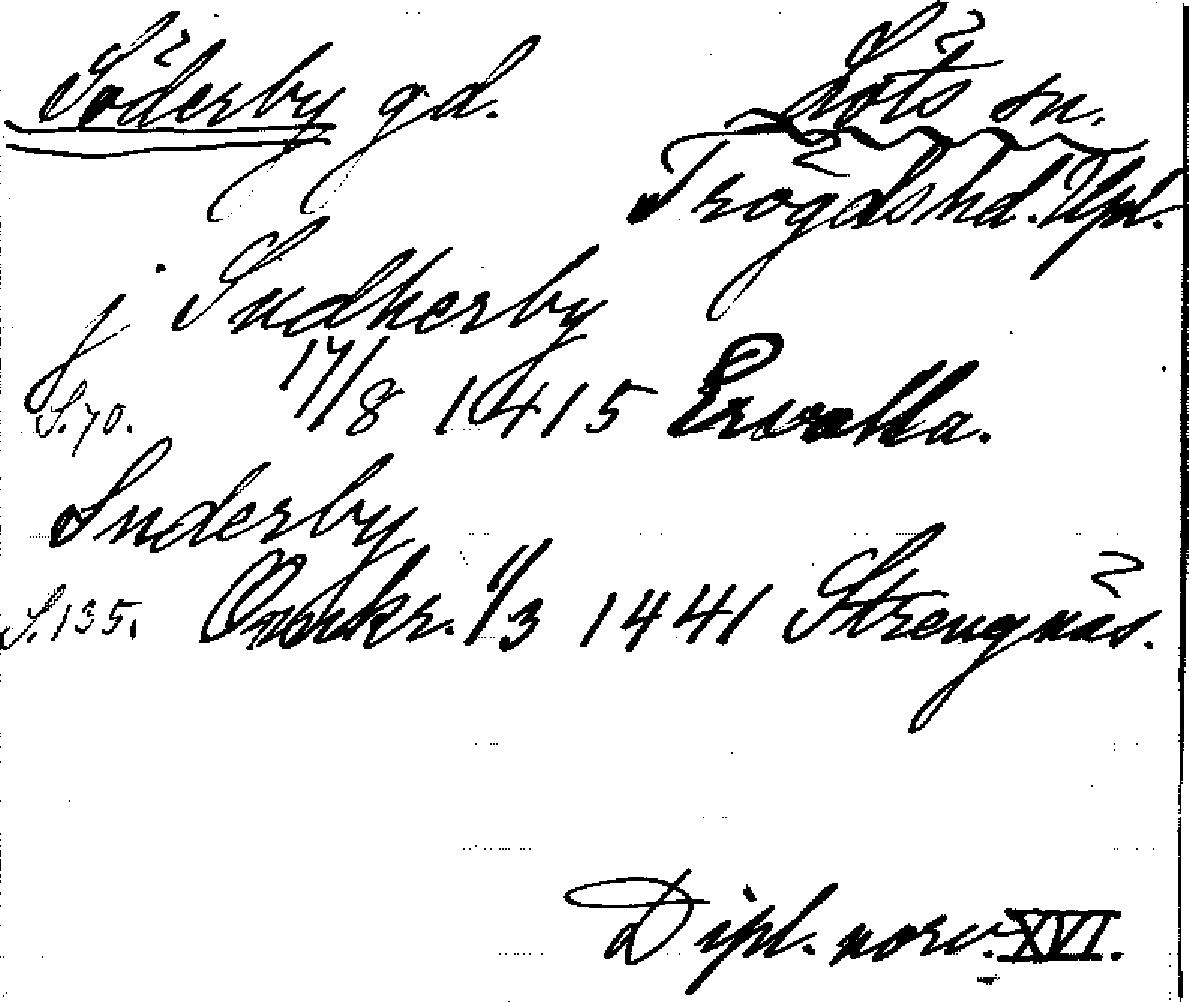 Söderby gd.
Löts sn.
Trögds hd. Upl.
j Sudherby
S. 70. 17/8 1415 Ervalla.
Suderby
S. 135. Omkr. 1/3 1441 Strengnäs.
Dipl. norv. XVI.